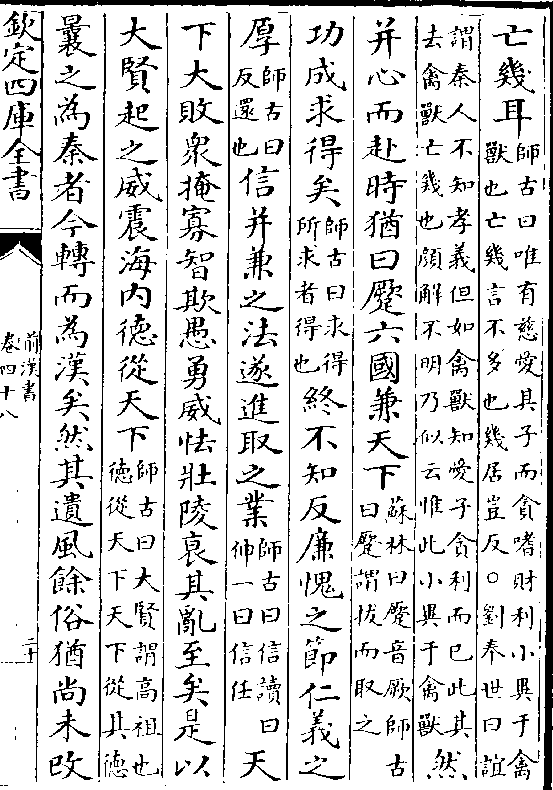 亡幾耳師古曰唯有慈愛其子而貪嗜財利小異于禽獸也亡幾言不多也幾居豈反○劉奉世曰誼
謂秦人不知孝義但如禽獸知愛子貪利而已此其去禽獸亡幾也顔解不明乃似云惟此小異于禽獸然
并心而赴時猶曰蹷六國兼天下蘇林曰蹷音厥師古曰蹷謂拔而取之
功成求得矣師古曰求得所求者得也終不知反廉愧之節仁義之
厚師古曰反還也信并兼之法遂進取之業師古曰信讀曰伸一曰信任天
下大敗衆掩寡智欺愚勇威怯壯陵衰其亂至矣是以
大賢起之威震海内德從天下師古曰大賢謂高祖也德從天下天下從其德
曩之為秦者今轉而為漢矣然其遺風餘俗猶尚未改
欽定四庫全書
前漢書
卷四十八
二十